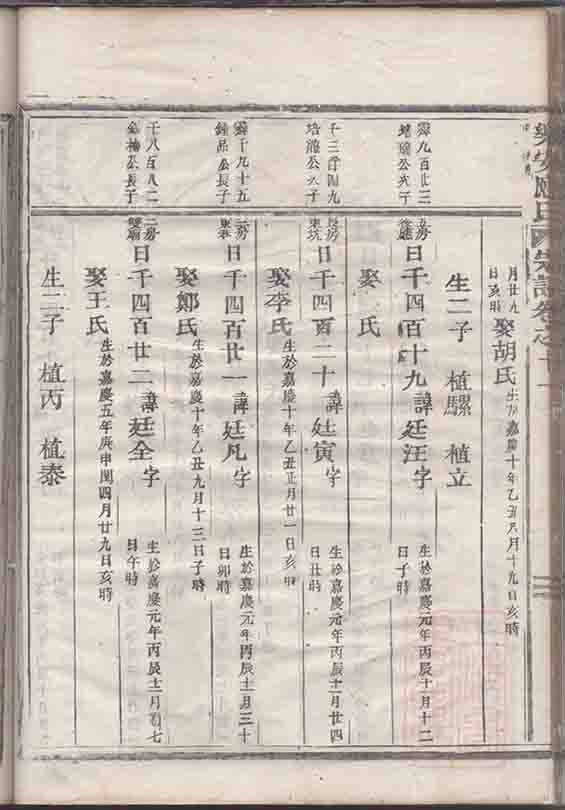 樂安應氏宗譜卷之十一
月廿九
日亥時
娶胡氏
生於嘉慶十年乙丑八月十九日亥時
生二子 植騾 植立
霖九百廿三
日千四百十九諱廷汪字
生於嘉慶元年丙辰十一月十二
日子時
娶 氏
千三百四九
培隴公次子
長房
東坑
日千四百二十諱廷寅字
生於嘉慶元年丙辰十一月廿四
日丑時
娶李氏
生於嘉慶十年乙丑正月廿一日亥時
霖千九十五
鍾昂公長子
日千四百廿一諱廷凡字
生於嘉慶元年丙辰十一月三十
日卯時
娶鄭氏
生於嘉慶十年乙丑九月十三日子時
千八百八二
公長子
二房
日千四百廿二諱廷全字
生於嘉慶元年丙辰十二月初七
日午時
娶王氏
生於嘉慶五年庚申閏四月廿九日亥時
生二子 植丙 植泰